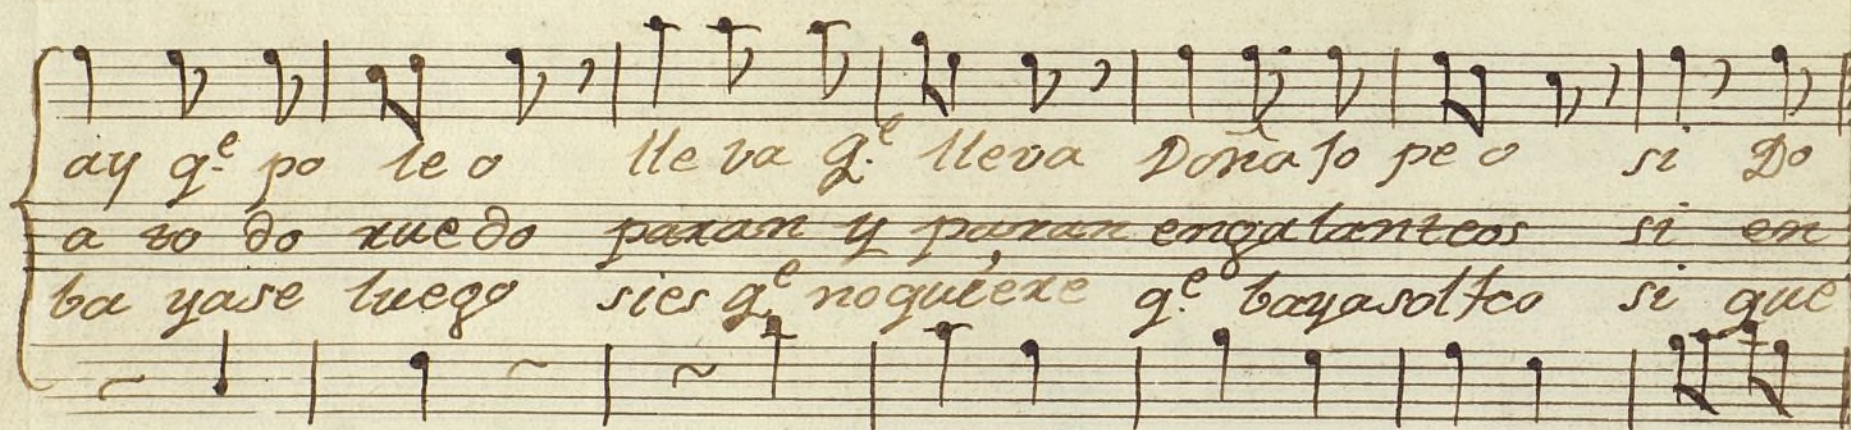 ay q.e po le o lle va q.e lleva Doña so pe o si Do
a to do ruedo paran y paran engalanteos si en
ba yase luego sies q.e noquiere q.e bayasolteo si que